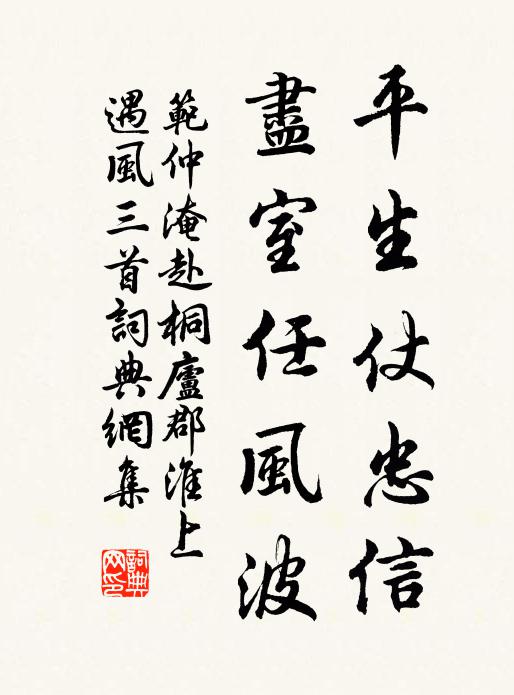 平生仗忠信
盡室任風波
範仲淹赴桐廬郡淮上
遇風三首詞典網集
詞典網印